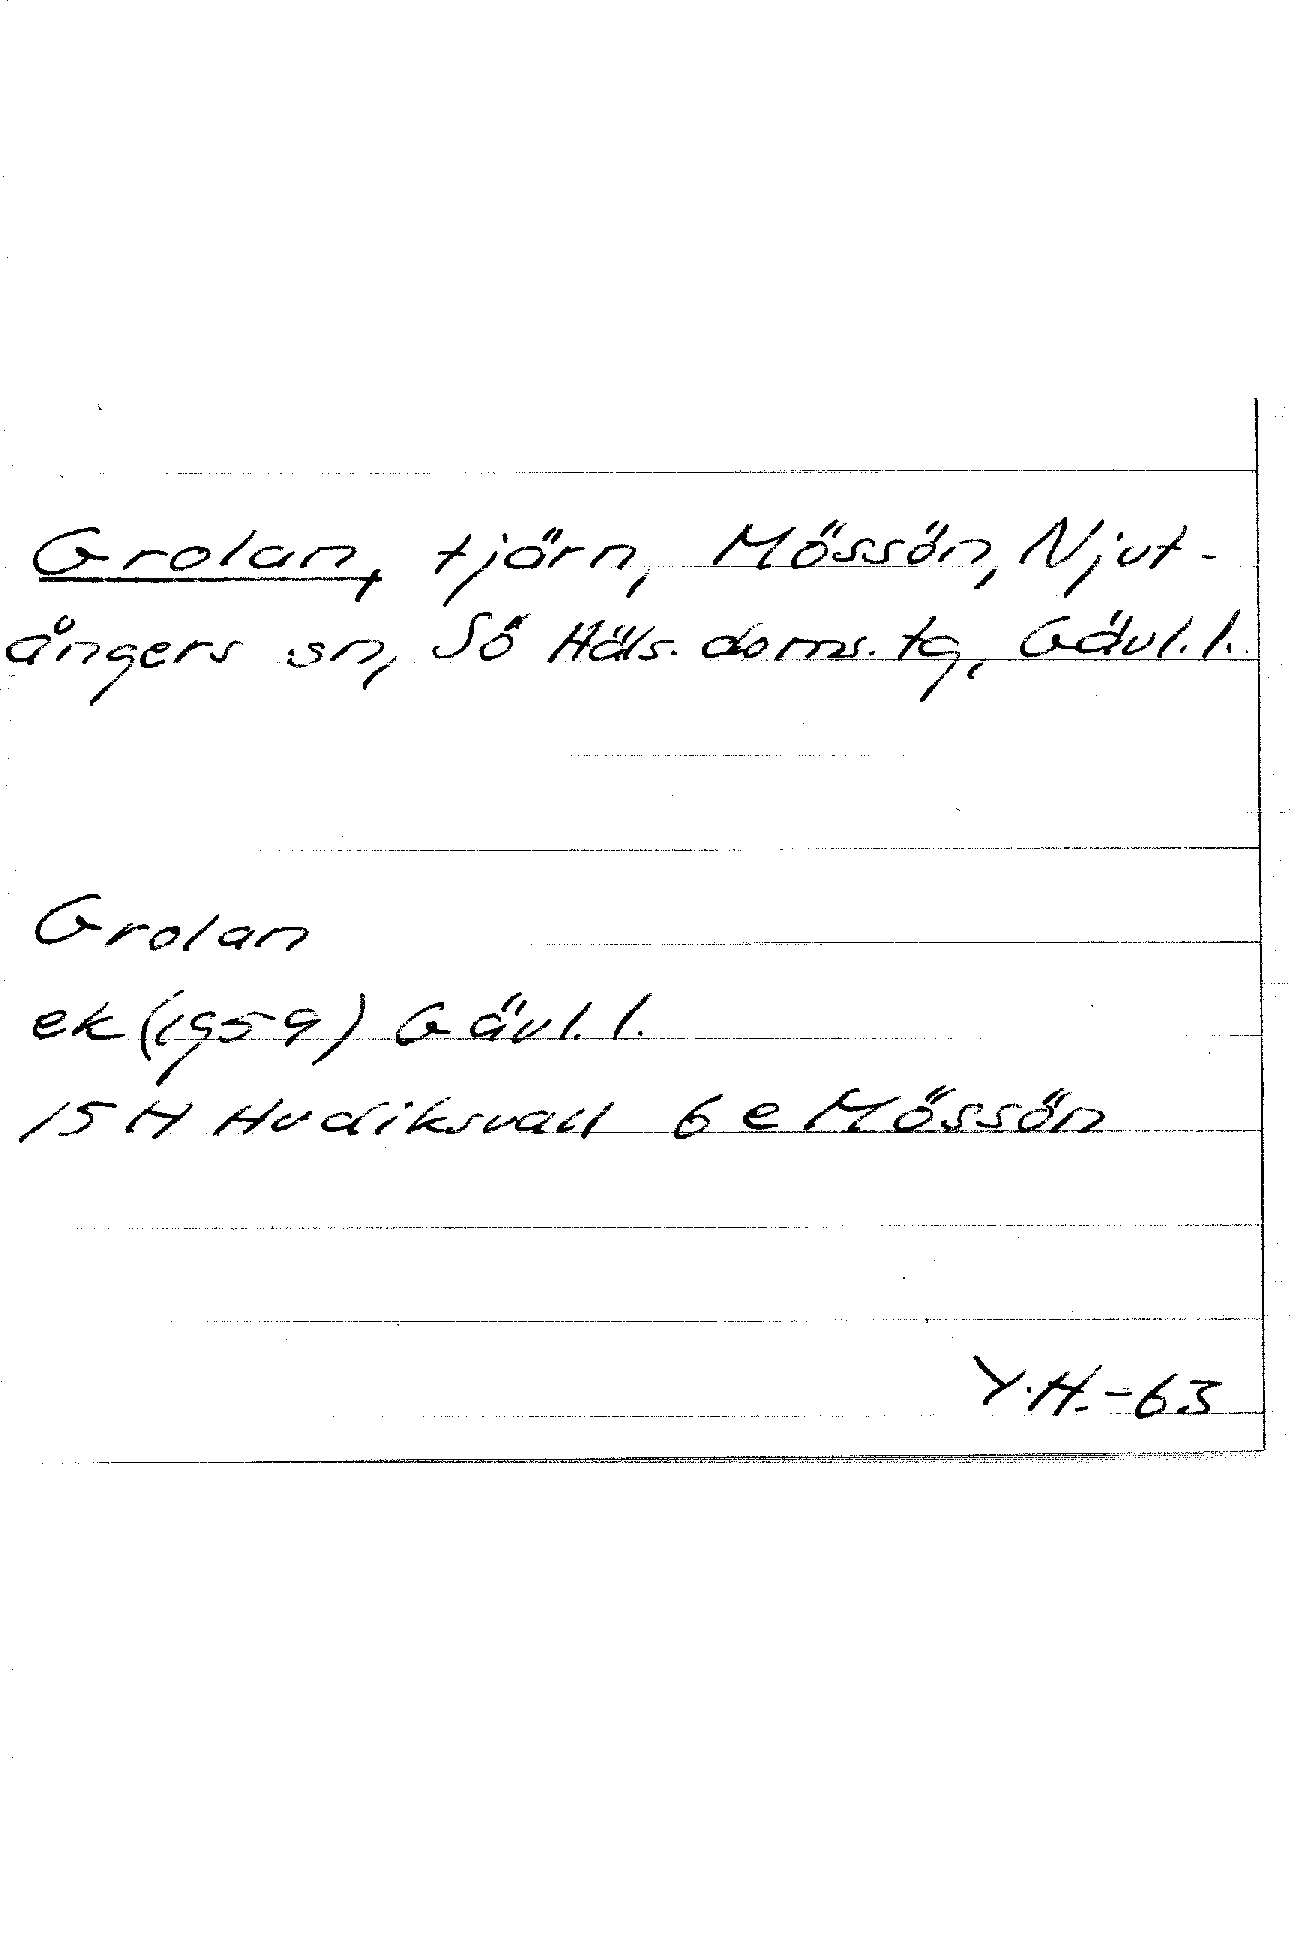 Grolan, tjärn, Mössön, Njut-
ångers sn, Sö Häls. doms. tg, Gävl. l.
Grolan
ek (1959) Gävl. l.
15 H Hudiksvall 6 e Mössön
Y.H.-63